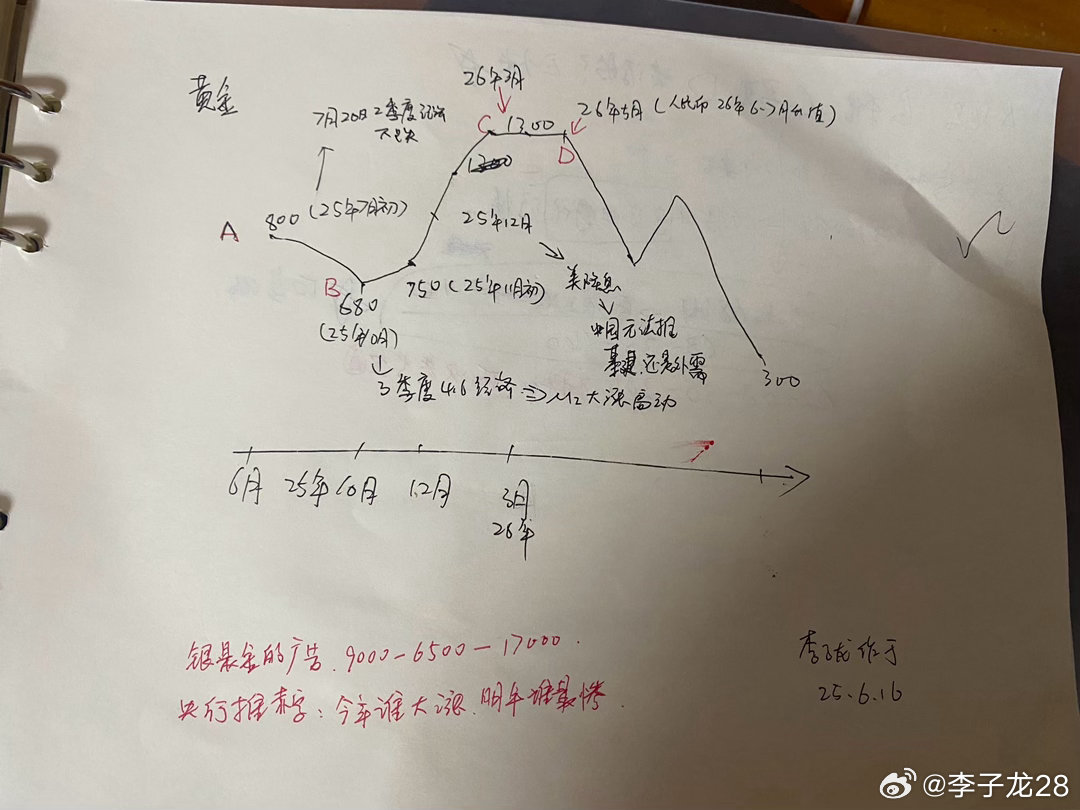 黄金
26年3月
7月20日2季度经济
不足失
C
1300
26年5月(人民币26年6-7月贬值)
D
A
800(25年7月初)
25年12月
B
680
(25年10月)
750(25年11月初)
美降息
中国无法扛
还是外需
300
3季度4.6经济⇒M2大涨启动
6月
25年10月
12月
3月
26年
银是金的广告.9000-6500-17000.
央行推赤字:今年谁大涨.明年谁最惨.
李子龙作于
25.6.16
@李子龙28